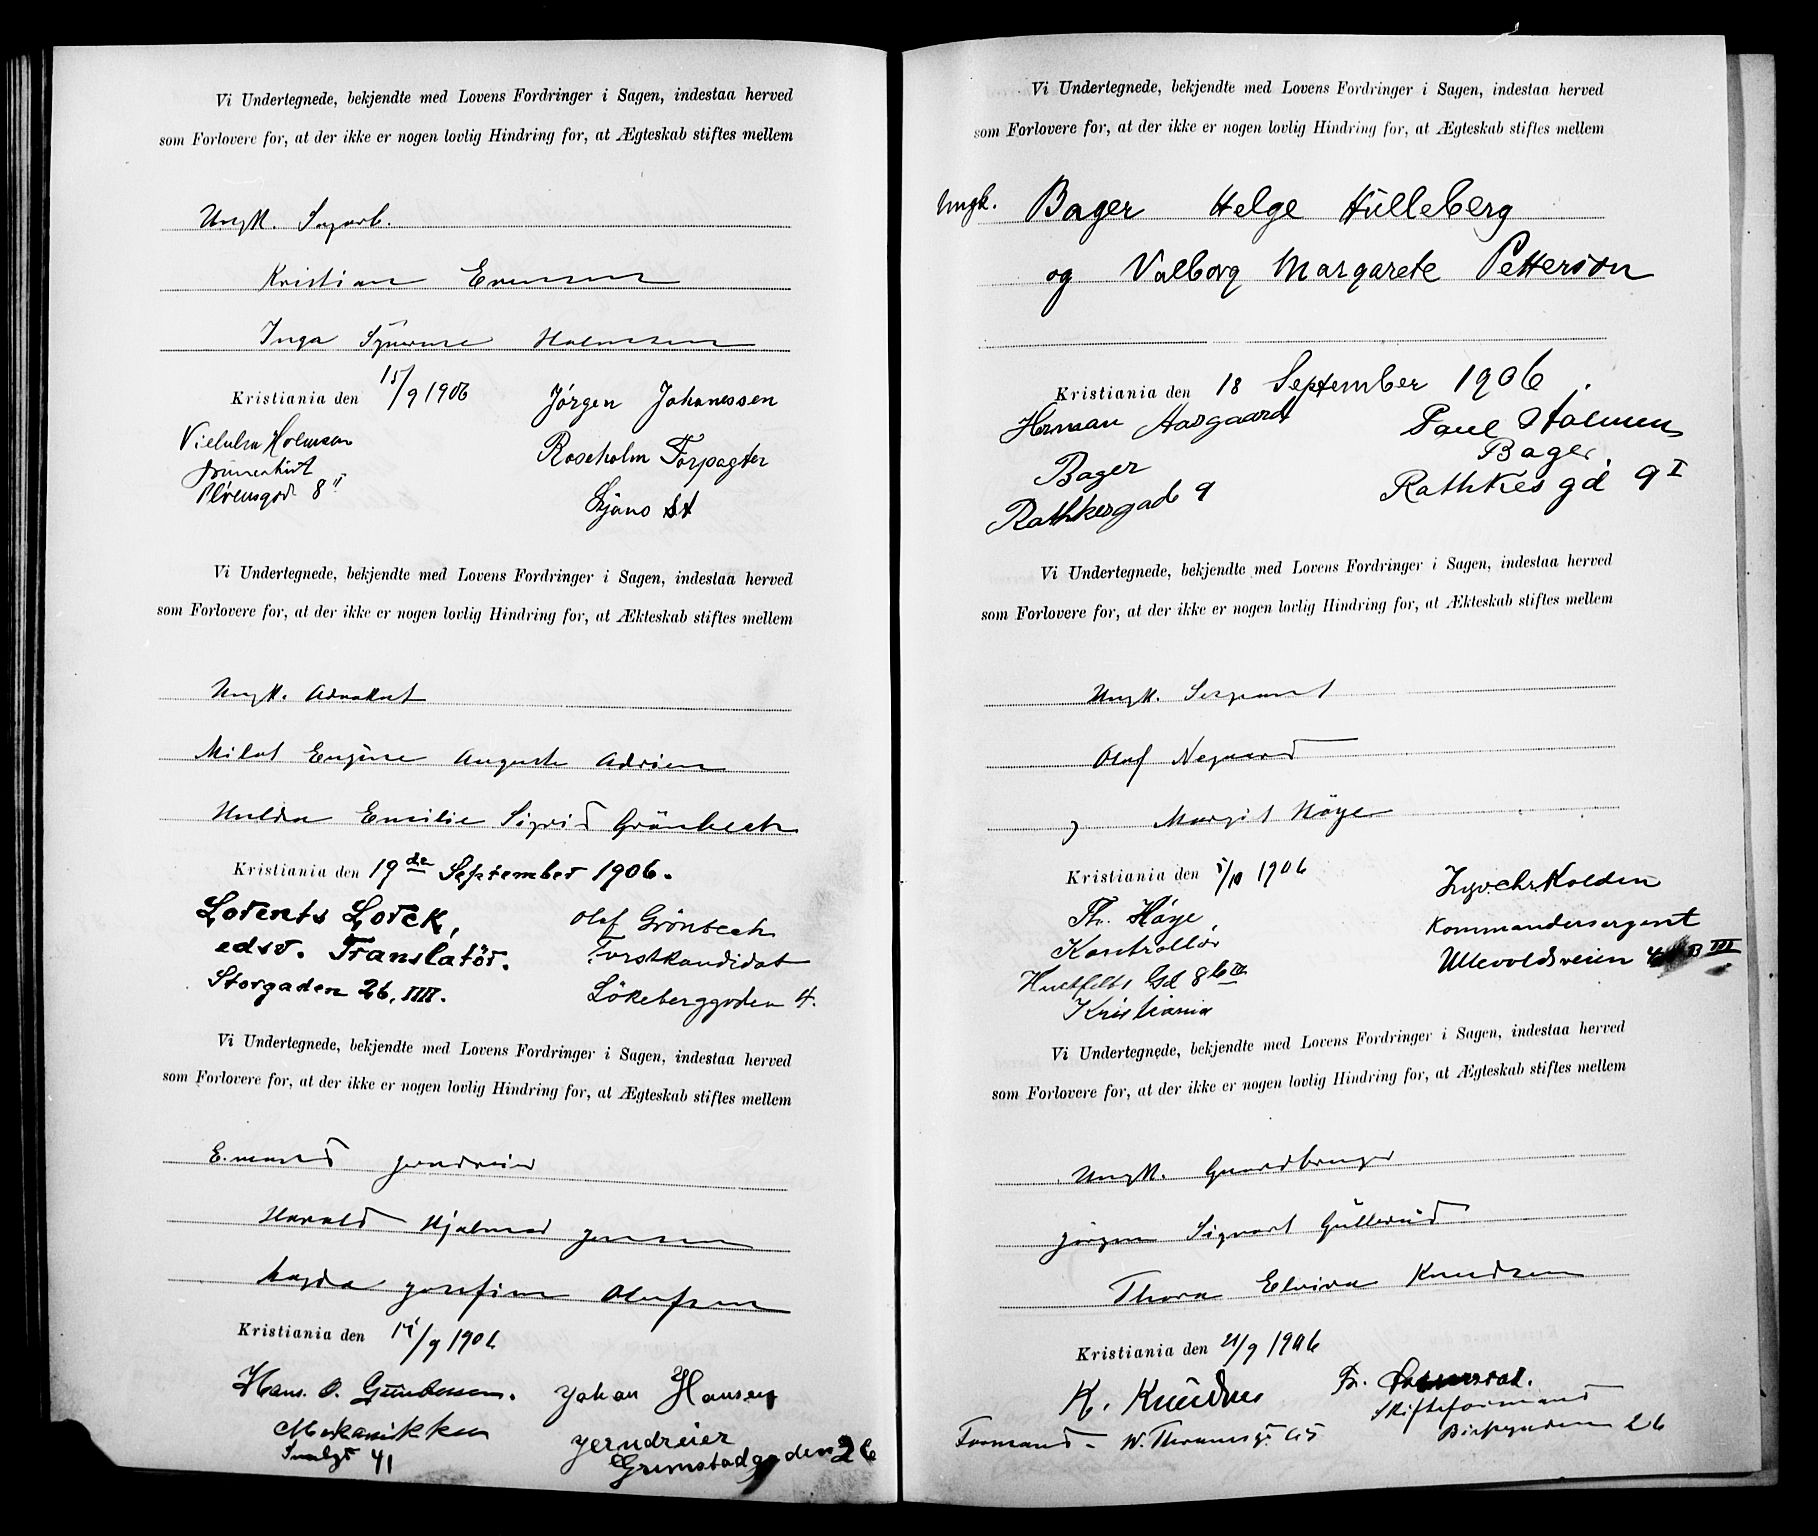 Vi Undertegnede, bekjendte med Lovens Fordringer i Sagen, indestaa herved
som Forlovere for, at der ikke er nogen lovlig Hindring for, at Ægteskab stiftes mellem
Ungk.
Kristian Evensen
Inga Holmsen
Kristiania den 15/9 1906
Jörgen Johanessen
Holmsen
Roseholm Forpagter
8 II
Ljans St
Vi Undertegnede, bekjendte med Lovens Fordringer i Sagen, indestaa herved
som Forlovere for, at der ikke er nogen lovlig Hindring for, at Ækteskab stiftes mellem
Ungk. Advokat
Milot Eugène Auguste Adrien
Hulda Emilie Sigrid Grönbech
Kristiania den 19de September 1906.
Lorents Lorck,
Olaf Grönbech
edsv. Translatör.
Forstkandidat
Storgaden 26, IIII.
Lökeberggaden 4.
Vi Undertegnede, bekjendte med Lovens Fordringer i Sagen, indestaa herved
som Forlovere for, at der ikke er nogen lovlig Hindring for, at Ægteskab stiftes mellem
E.mand jerndreier
Harald Hjalmar Jensen
Magda Josefine Olufsen
Kristiania den /9 1906
Hans. O. Gundersen.
Johan Hansen
Mekaniker
jerndreier
41
Grimstadgaden 26
Vi Undertegnede, bekjendte med Lovens Fordringer i Sagen, indestaa herved
som Forlovere for, at der ikke er nogen lovlig Hindring for, at Ægteskab stiftes mellem
Ungk. Bager Helge Hilleberg
og Valborg Margarete Petterson
Kristiania den 18 September 1906.
Herman Aasgaard
Paul Holmen
Bager
Bager.
Rathkesgad 9
Rathkes gd 9 I
Vi Undertegnede, bekjendte med Lovens Fordringer i Sagen, indestaa herved
som Forlovere for, at der ikke er nogen lovlig Hindring for, at Ækteskab stiftes mellem
Ungk. Sergeant
Olaf Negaard
Margit Höye
Kristiania den 5/10 1906
Th. Höye
Kontrollör
Kommandersergent
Huitfeldts Gd 8b IV
Ullevoldsveien
Kristiania
Vi Undertegnede, bekjendte med Lovens Fordringer i Sagen, indestaa herved
som Forlovere for, at der ikke er nogen lovlig Hindring for, at Ægteskab stiftes mellem
Ungk. Gaardbruger
Jörgen Sigvart Gullerud
Thora Elvira Knudsen
Kristiania den 21/9 1906
K. Knudsen
Fr.
Skifteformand
Formand
26